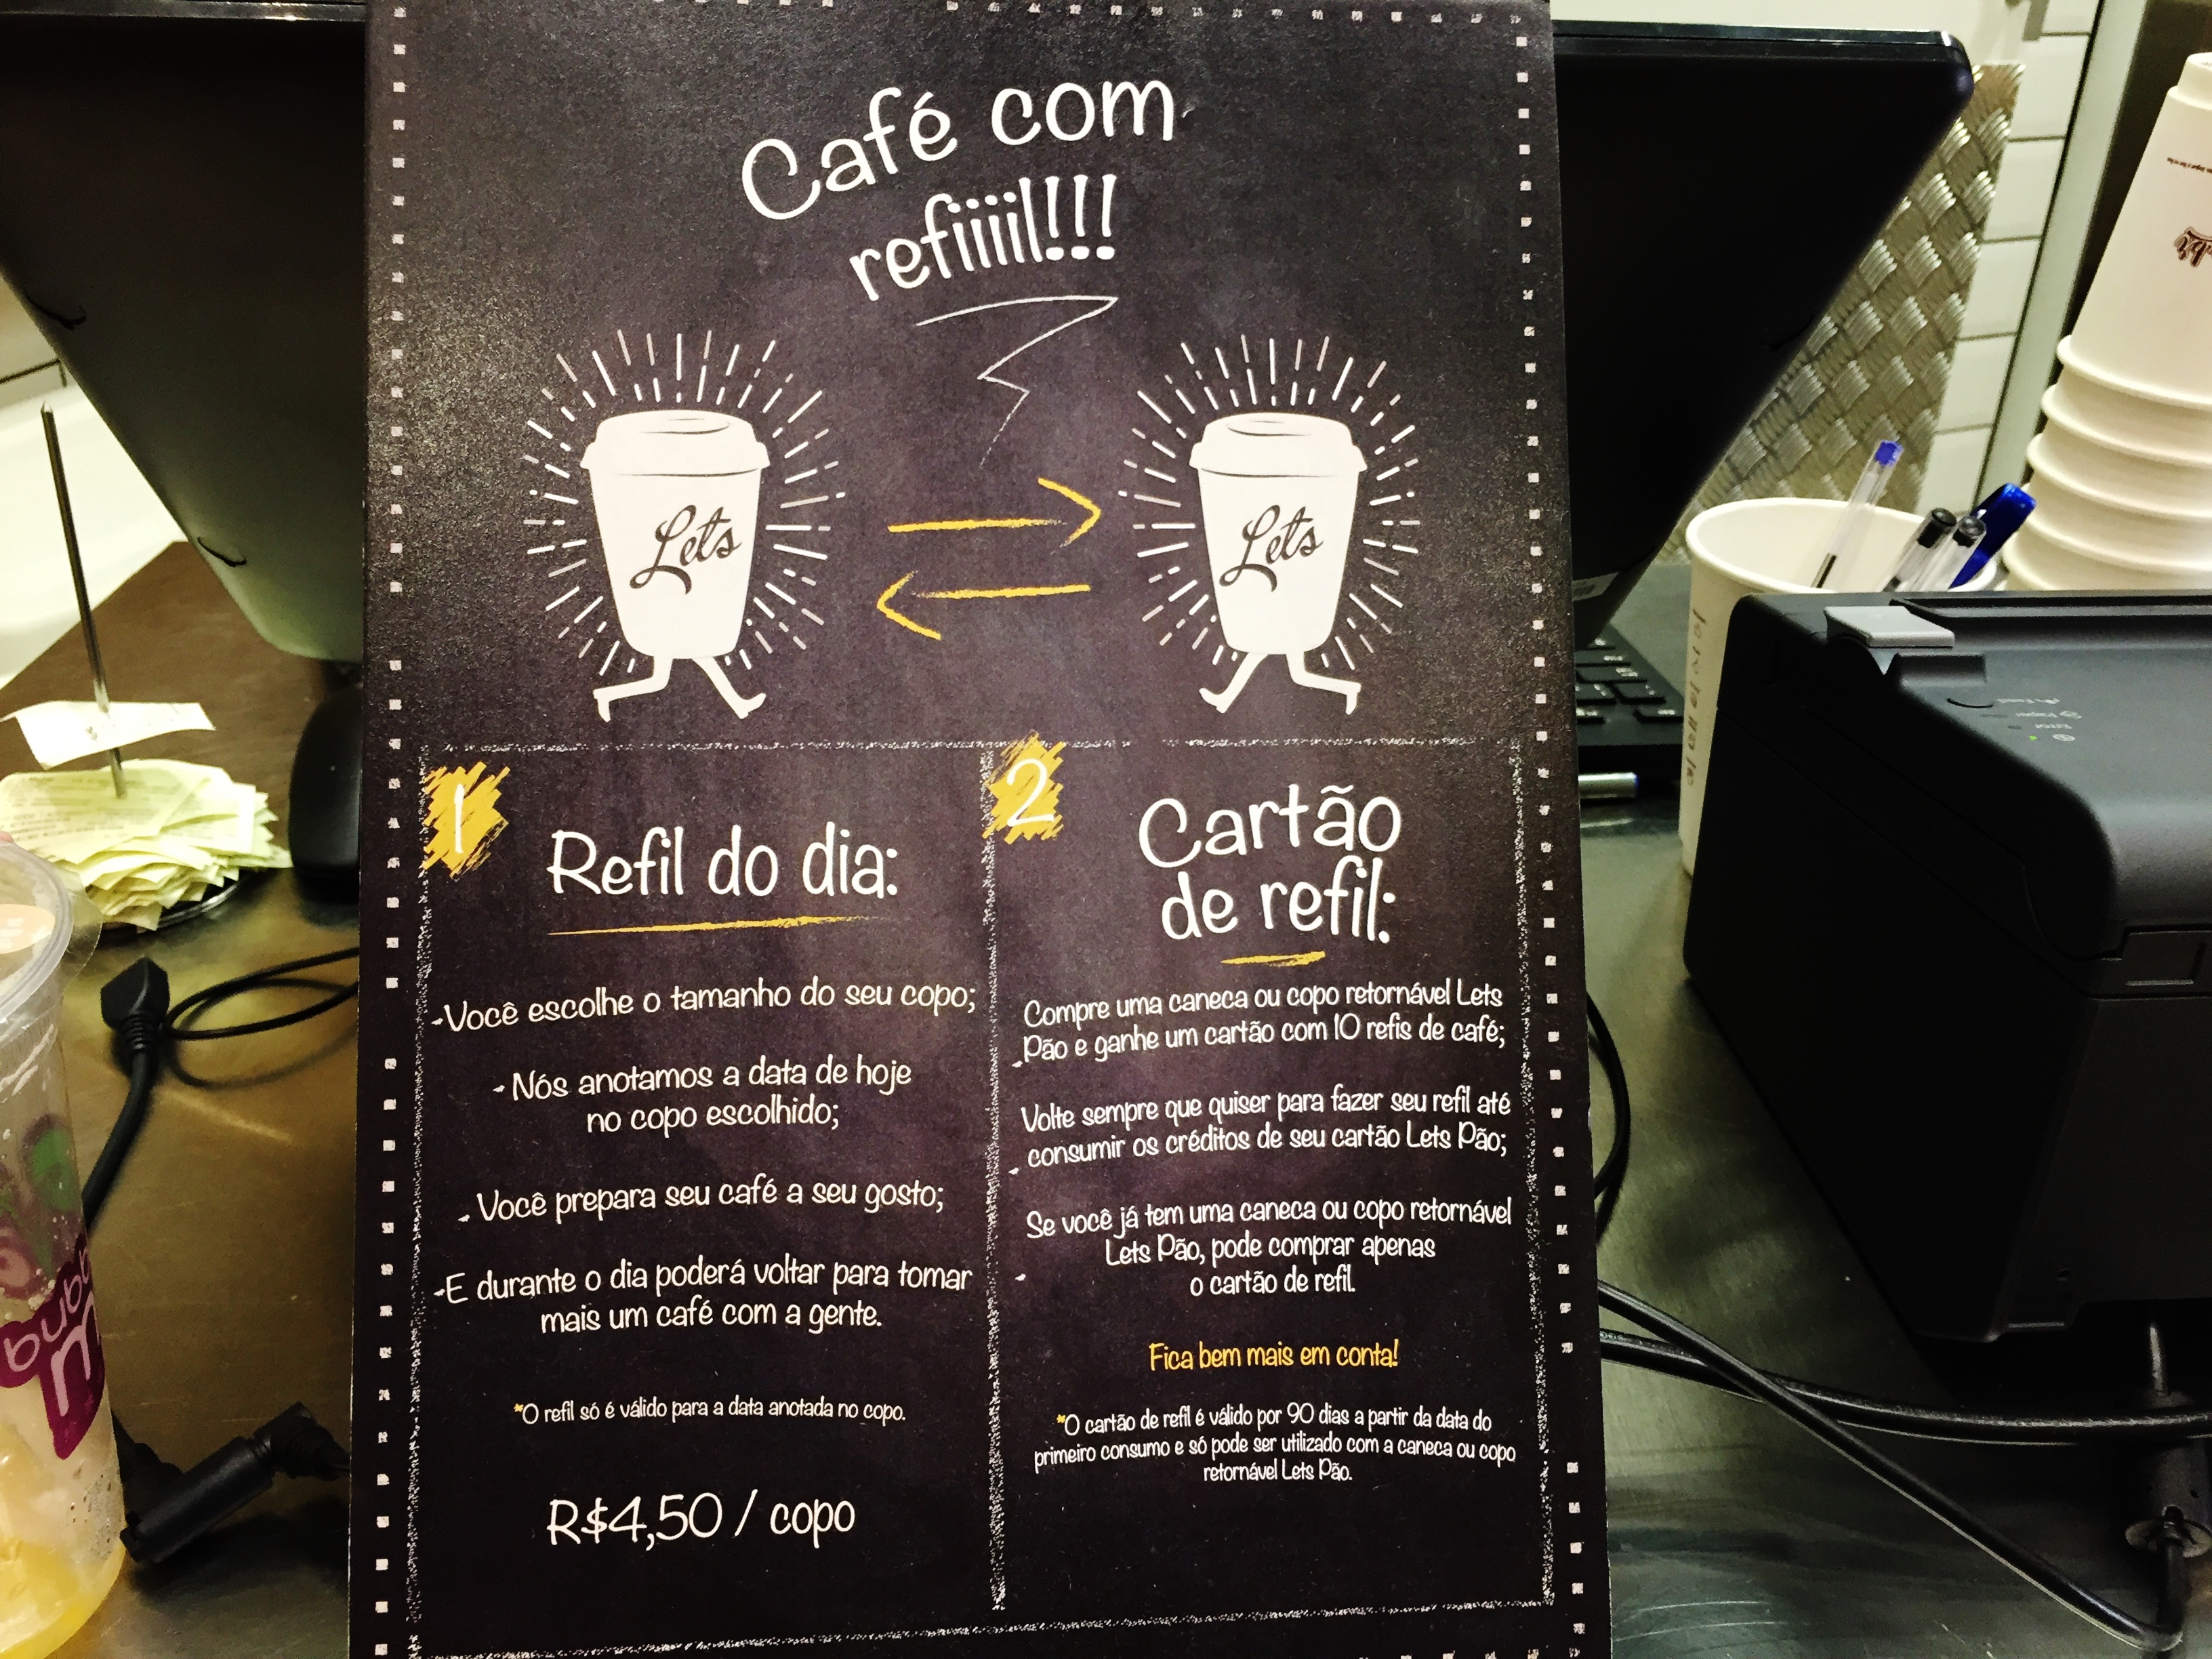 Café com
refiiiil!!!
Lets
Lets
1
Refil do dia:
-Você escolhe o tamanho do seu copo;
- Nós anotamos a data de hoje
no copo escolhido;
- Você prepara seu café a seu gosto;
-E durante o dia poderá voltar para tomar
mais um café com a gente.
*O refil só é válido para a data anotada no copo.
R$4,50 / copo
2
Cartão
de refil:
Compre uma caneca ou copo retornável Lets
-Pão e ganhe um cartão com 10 refis de café;
Volte sempre que quiser para fazer seu refil até
- consumir os créditos de seu cartão Lets Pão;
Se você já tem uma caneca ou copo retornável
Lets Pão, pode comprar apenas
- o cartão de refil.
Fica bem mais em conta!
*O cartão de refil é válido por 90 dias a partir da data do
primeiro consumo e só pode ser utilizado com a caneca ou copo
retornável Lets Pão.
Feed
Paper
Error